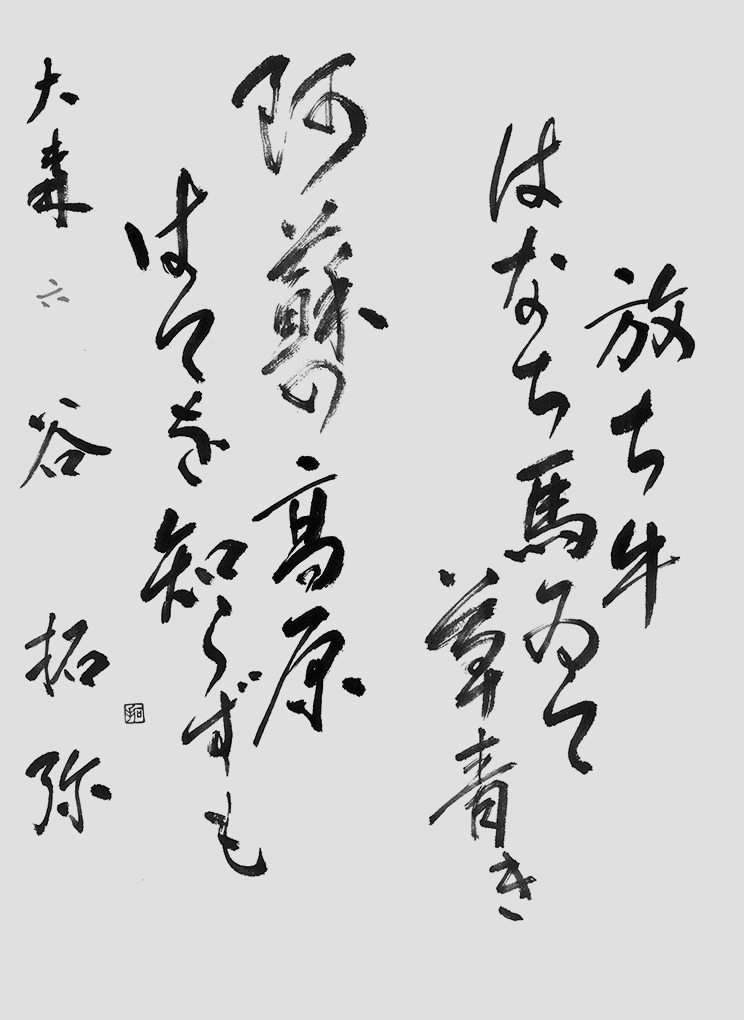 放ち牛
はなち馬ゐて
草青き
阿蘇の高原
はてを知らずも
大森 六 谷 拓弥
拓